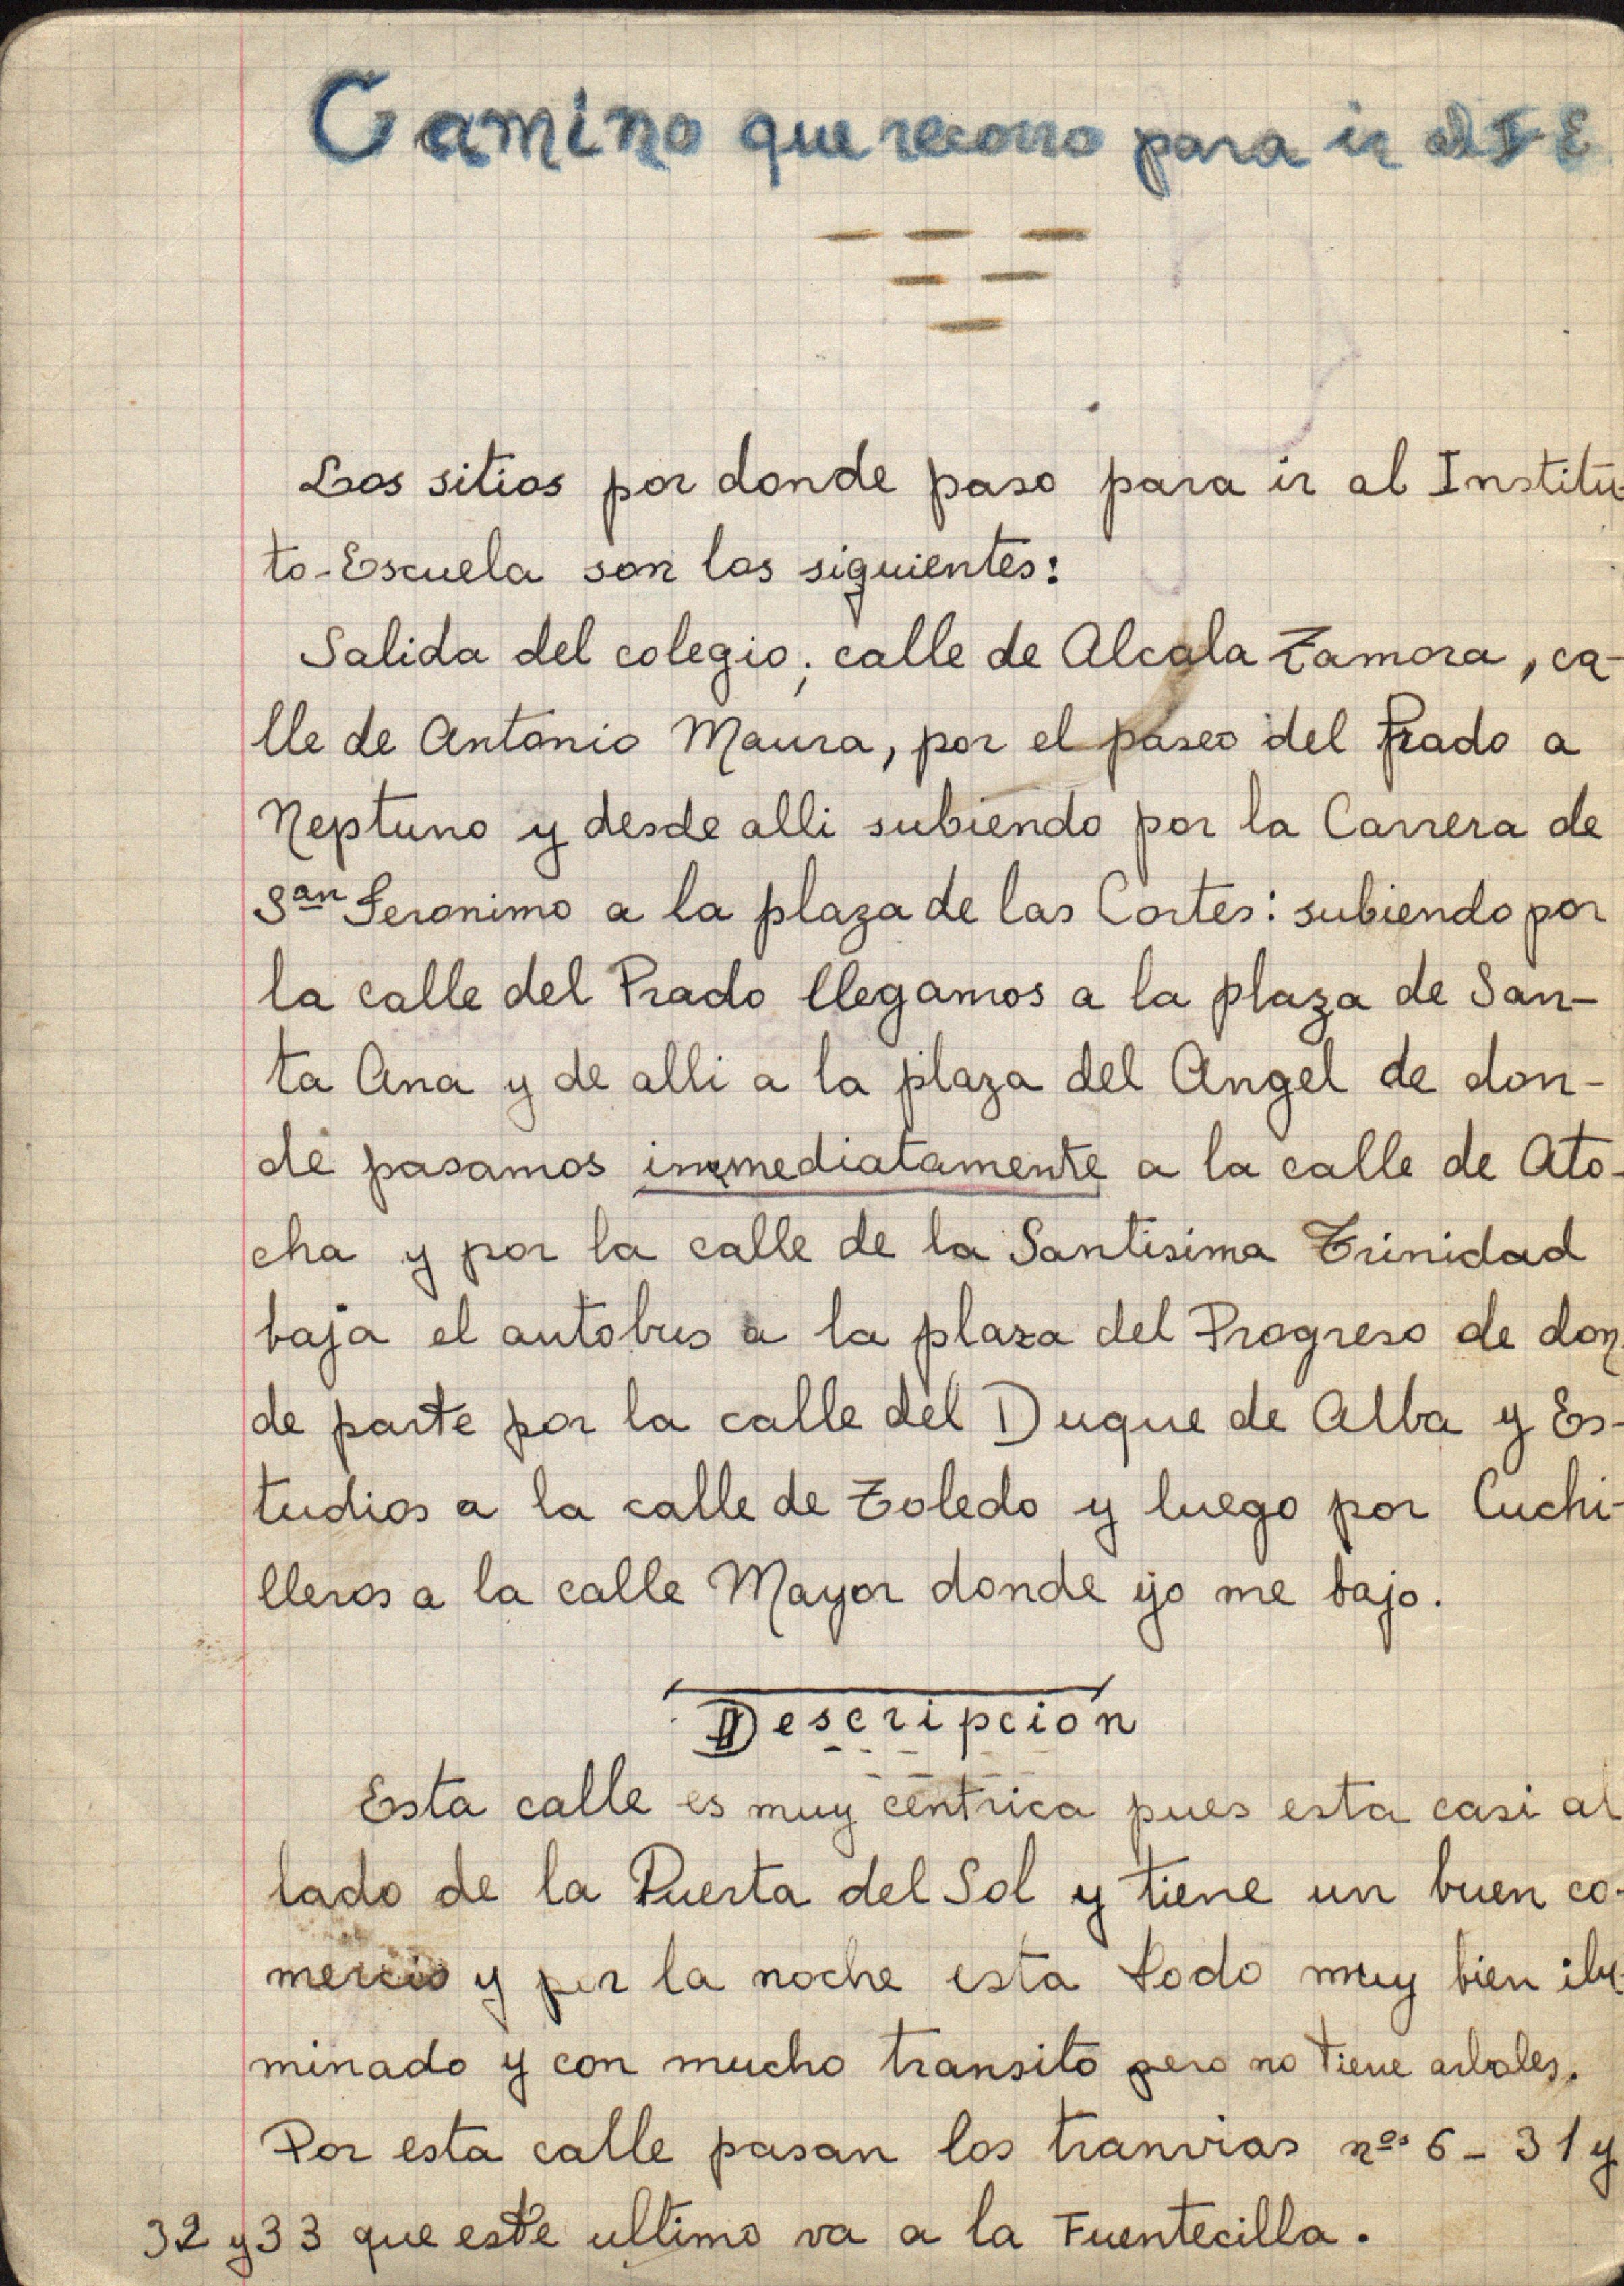 Camino que recorro para ir al I E
Los sitios por donde paso para ir al Institu-
to-Escuela son los siguientes:
Salida del colegio; calle de Alcala Zamora, ca-
lle de Antonio Maura, por el paseo del Prado a
Neptuno y desde alli subiendo por la Carrera de
San Jeronimo a la plaza de las Cortes: subiendo por
la calle del Prado llegamos a la plaza de San-
ta Ana y de alli a la plaza del Angel de don-
de pasamos inmediatamente a la calle de Ato-
cha y por la calle de la Santisima Trinidad
baja el autobus a la plaza del Progreso de don-
de parte por la calle del Duque de Alba y Es-
tudios a la calle de Toledo y luego por Cuchi-
lleros a la calle Mayor donde yo me bajo.
Descripción
Esta calle es muy centrica pues esta casi al
lado de la Puerta del Sol y tiene un buen co-
mercio y por la noche esta todo muy bien ilu-
minado y con mucho transito pero no tiene arboles.
Por esta calle pasan los tranvias nos 6 - 31 y
32 y 33 que este ultimo va a la Fuentecilla.